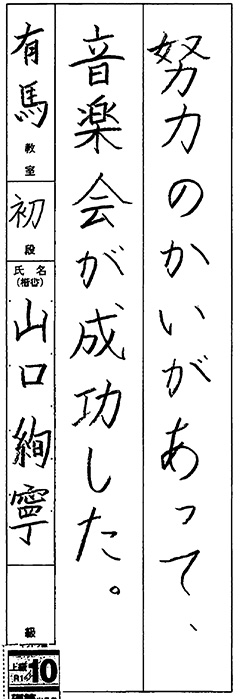 努力のかいがあって、
音楽会が成功した。
有馬教室
初段
氏名
山口絢寧
級
10